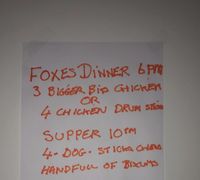 FOXES DINNER 6PM
3 BIGGER BITS CHICKEN
OR
4 CHICKEN DRUM
SUPPER 10PM
4. DOG. STICKS
HANDFULL OF BISCUITS